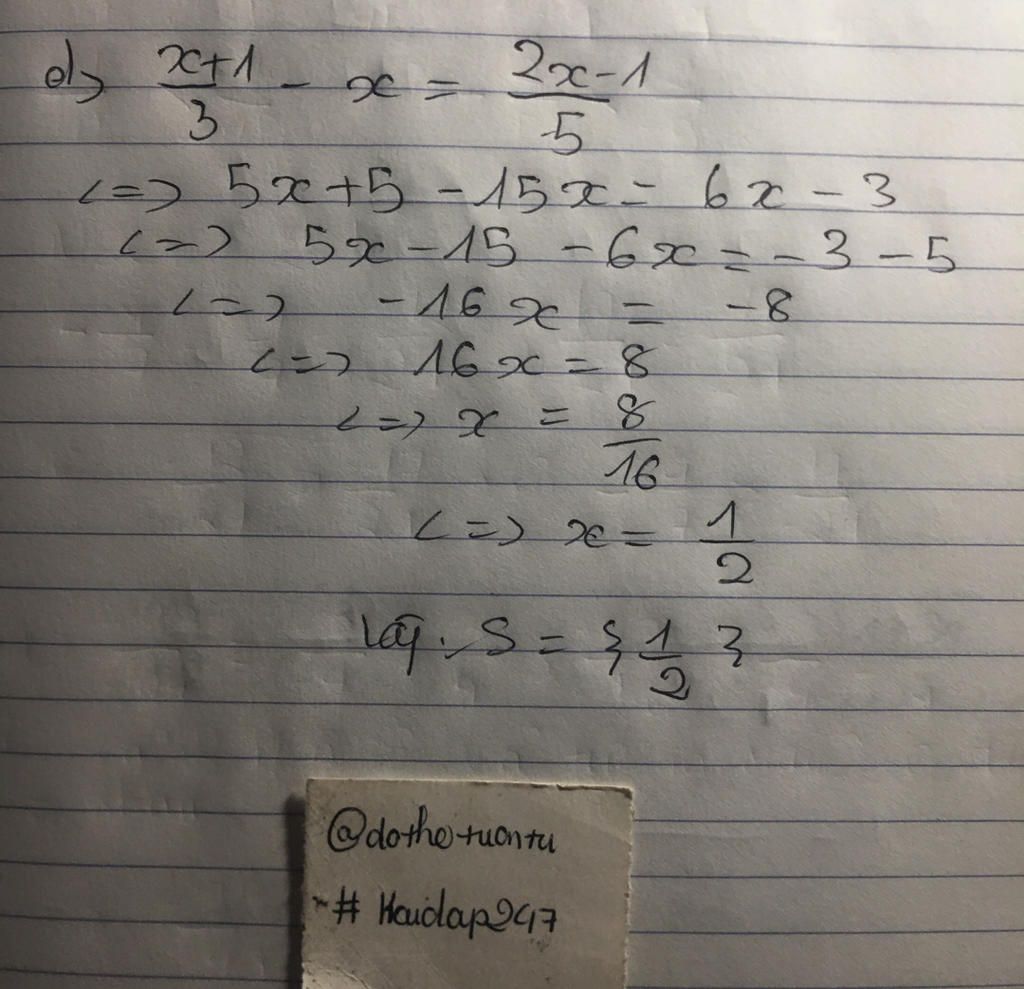 d) x+1/3 - x = 2x-1/5
<=> 5x+5 -15x = 6x - 3
<=> 5x-15 -6x = -3 -5
<=> -16x = -8
<=> 16x = 8
<=> x = 8/16
<=> x = 1/2
S = {1/2}
@dothetuantu
# Hoidap247